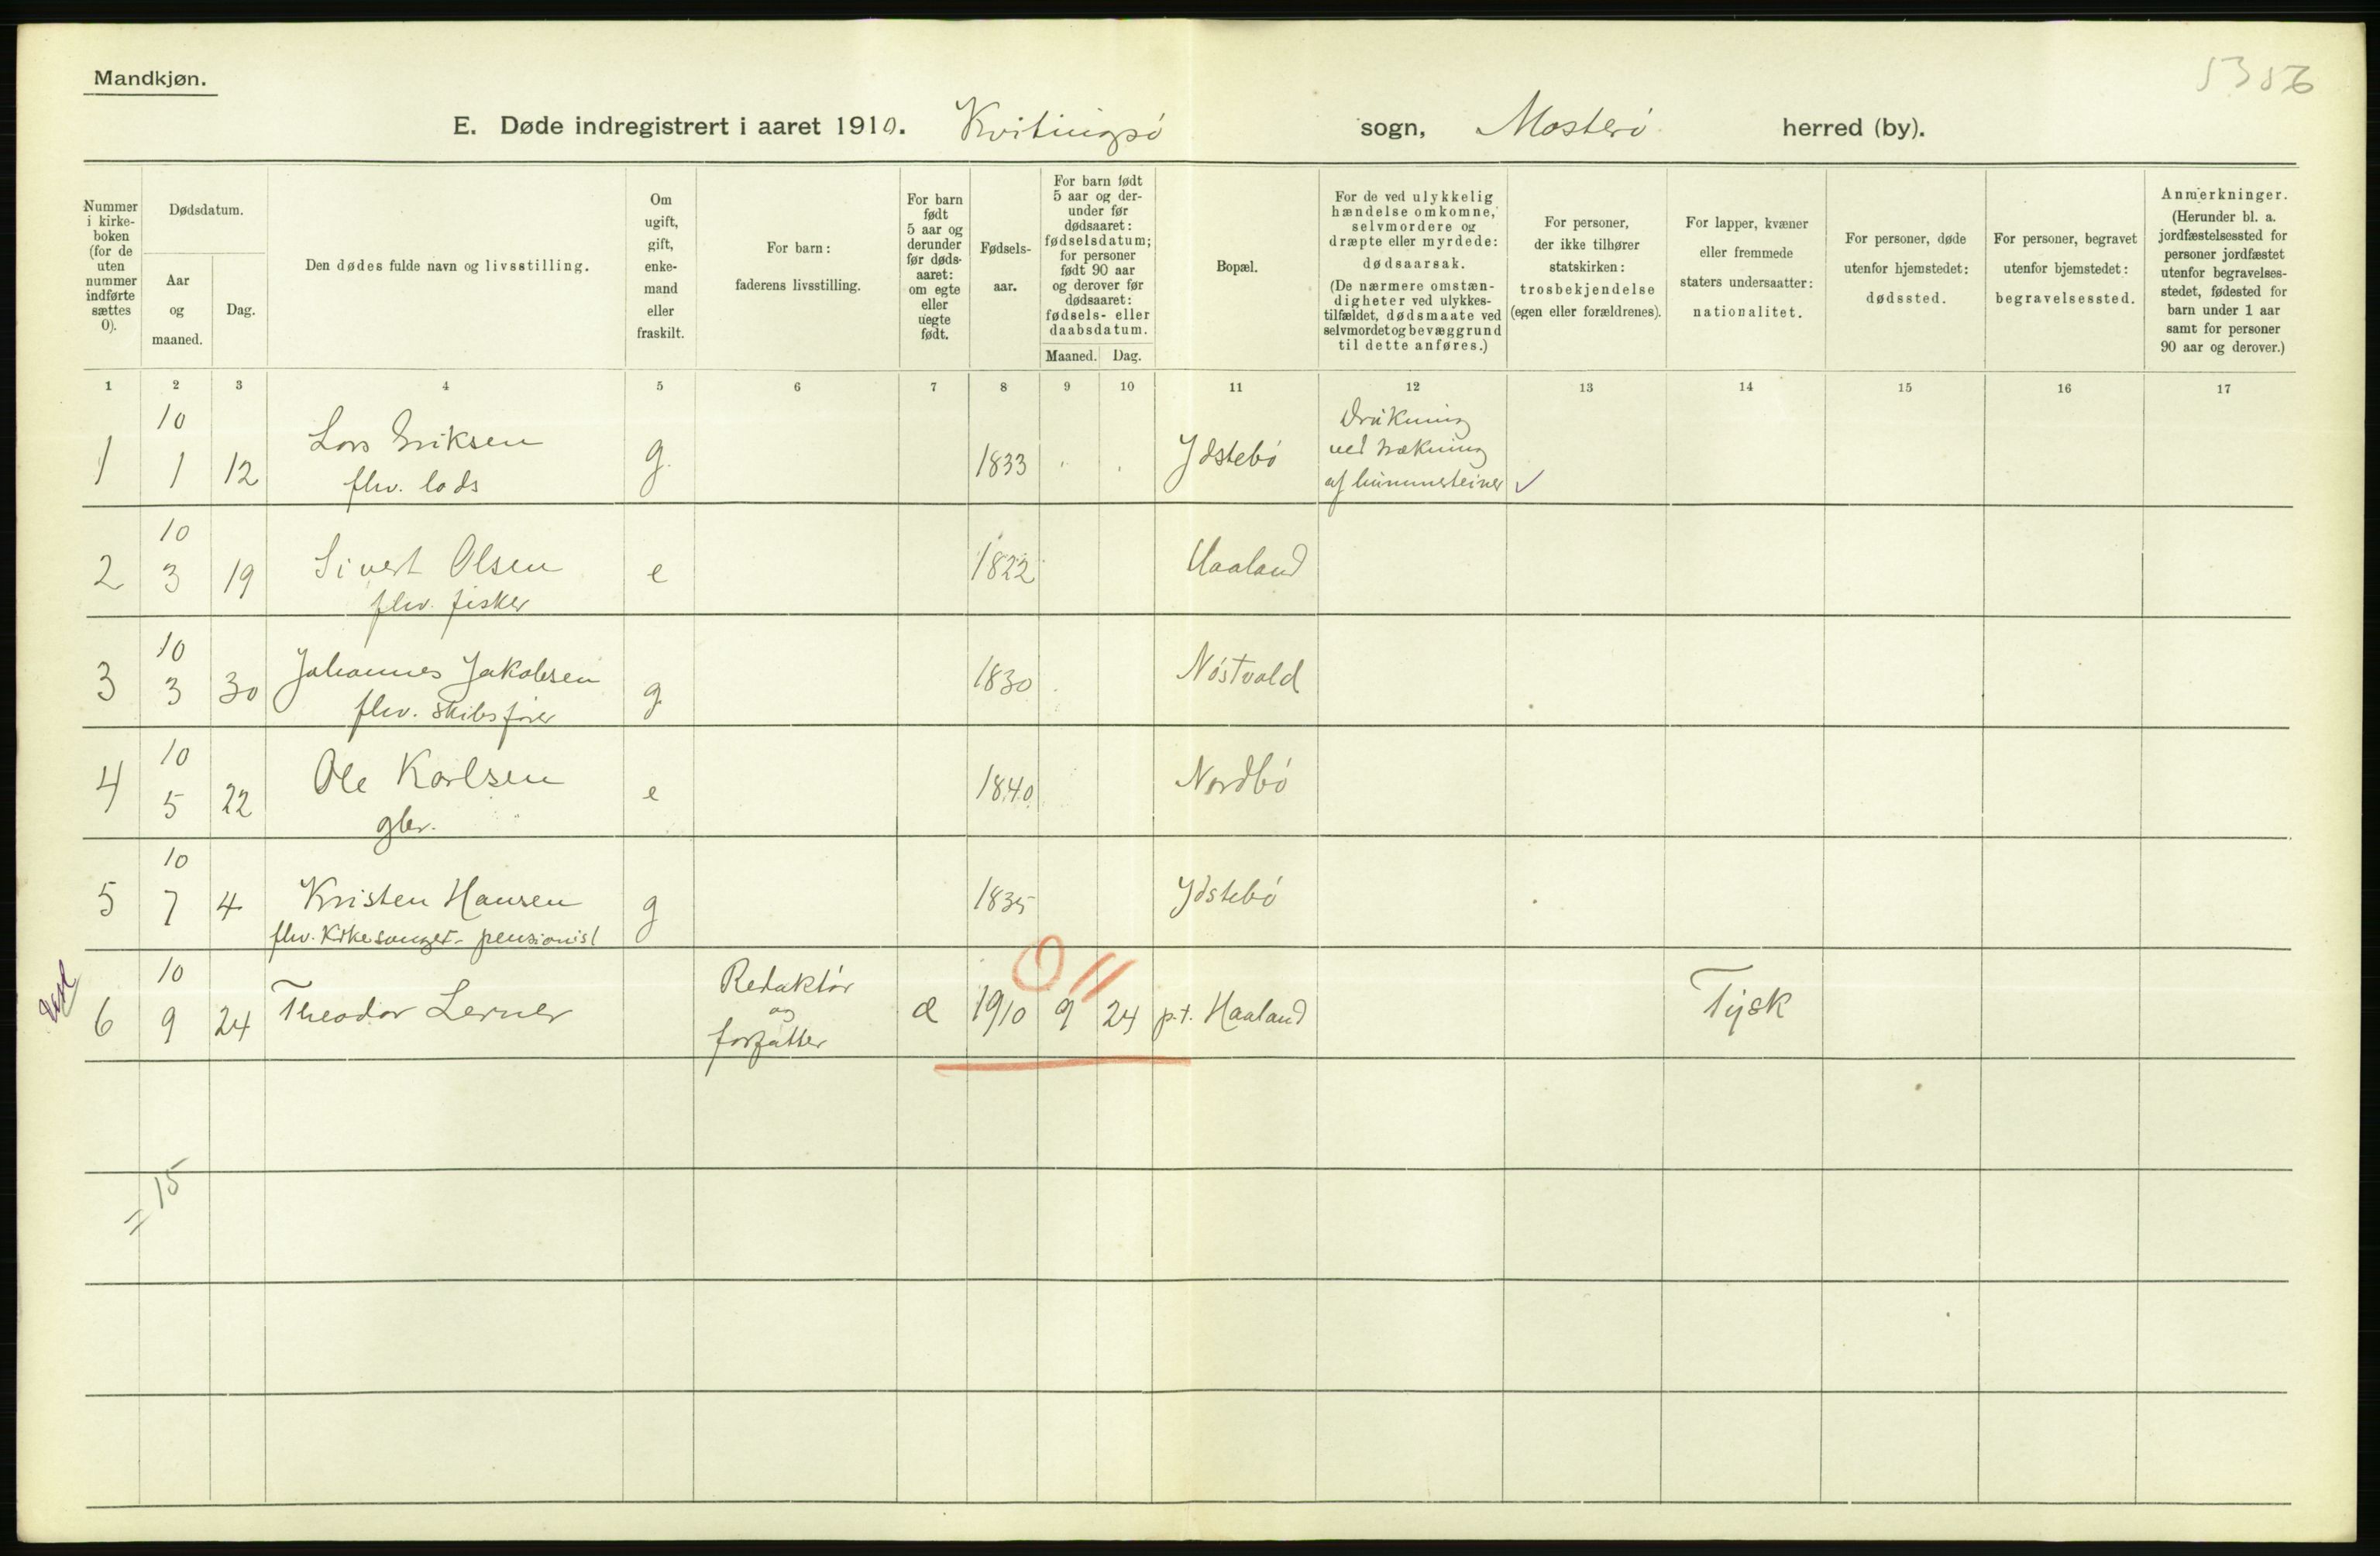 Mandkjøn.
5356
E. Døde indregistrert i aaret 1910. Kvitingsö sogn, Mosterö herred (by).
Nummer i kirke-boken (for de uten nummer indførte sættes 0).
Dødsdatum.
Aar og maaned.
Dag.
Den dødes fulde navn og livsstilling.
Om ugift, gift, enke-mand eller fraskilt.
For barn: faderens livsstilling.
For barn født 5 aar og derunder før døds-aaret: om egte eller uegte født.
Fødsels-aar.
For barn født 5 aar og der-under før dødsaaret: fødselsdatum; for personer født 90 aar og derover før dødsaaret: fødsels- eller daabsdatum.
Maaned. Dag.
Bopæl.
For de ved ulykkelig hændelse omkomne, selvmordere og dræpte eller myrdede: dødsaarsak.
(De nærmere omstæn-digheter ved ulykkes-tilfældet, dødsmaate ved selvmordet og bevæggrund til dette anføres.)
For personer, der ikke tilhører statskirken: trosbekjendelse (egen eller forældrenes).
For lapper, kvæner eller fremmede staters undersaatter: nationalitet.
For personer, døde utenfor hjemstedet: dødssted.
For personer, begravet utenfor hjemstedet: begravelsessted.
Anmerkninger.
(Herunder bl. a. jordfæstelsessted for personer jordfæstet utenfor begravelses-stedet, fødested for barn under 1 aar samt for personer 90 aar og derover.)
1 2 3 4 5 6 7 8 9 10 11 12 13 14 15 16 17
1 10 1 12 Lars Eriksen flv. lods g. 1833 Ydstebö Drukning ved trækning af hummerteiner
2 10 3 19 Sivert Olsen flv. fisker e 1822 Haaland
3 10 3 30 Johannes Jakobsen flv. skibsförer g 1830 Nöstvold
4 10 5 22 Ole Karlsen gbr. e 1840 Nordbö
5 10 7 4 Kristen Hansen flv. Kirkesanger - pensionist g 1835 Ydstebö
6 10 9 24 Theodor Lerner Redaktör og forfatter æ 1910 9 24 p.t. Haaland Tysk
0 11
= 15